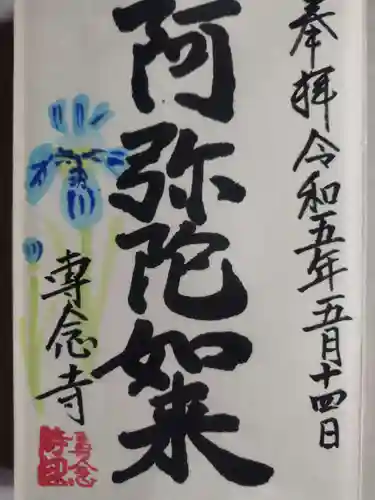 奉拝 令和五年五月十四日
阿弥陀如来
専念寺